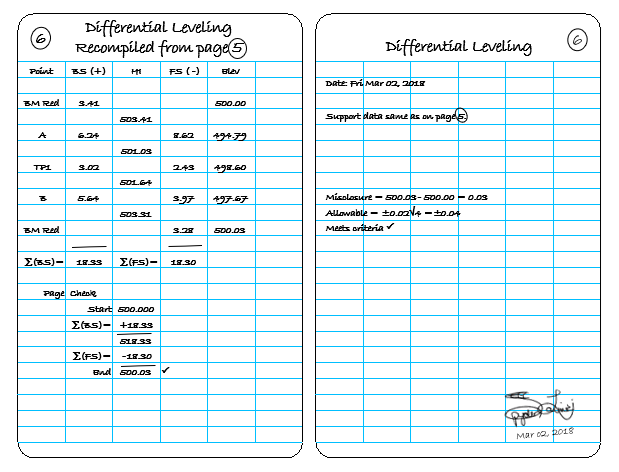 6
Differential Leveling
Recompiled from page 5
Point BS (+) HI FS (-) Elev
BM Red 3.41 500.00
503.41
A 6.24 8.62 494.79
501.03
TP1 3.02 2.43 498.60
501.64
B 5.64 3.97 497.67
503.31
BM Red 3.28 500.03
Σ(BS)= 18.33 Σ(FS)= 18.30
Page Check
Start 500.000
Σ(BS)= +18.33
518.33
Σ(FS)= -18.30
End 500.03 ✓
Differential Leveling
6
Date: Fri Mar 02, 2018
Support data same as on page 5.
Misclosure = 500.03 - 500.00 = 0.03
Allowable = ±0.02√4 = ±0.04
Meets criteria ✓
Mar 02, 2018